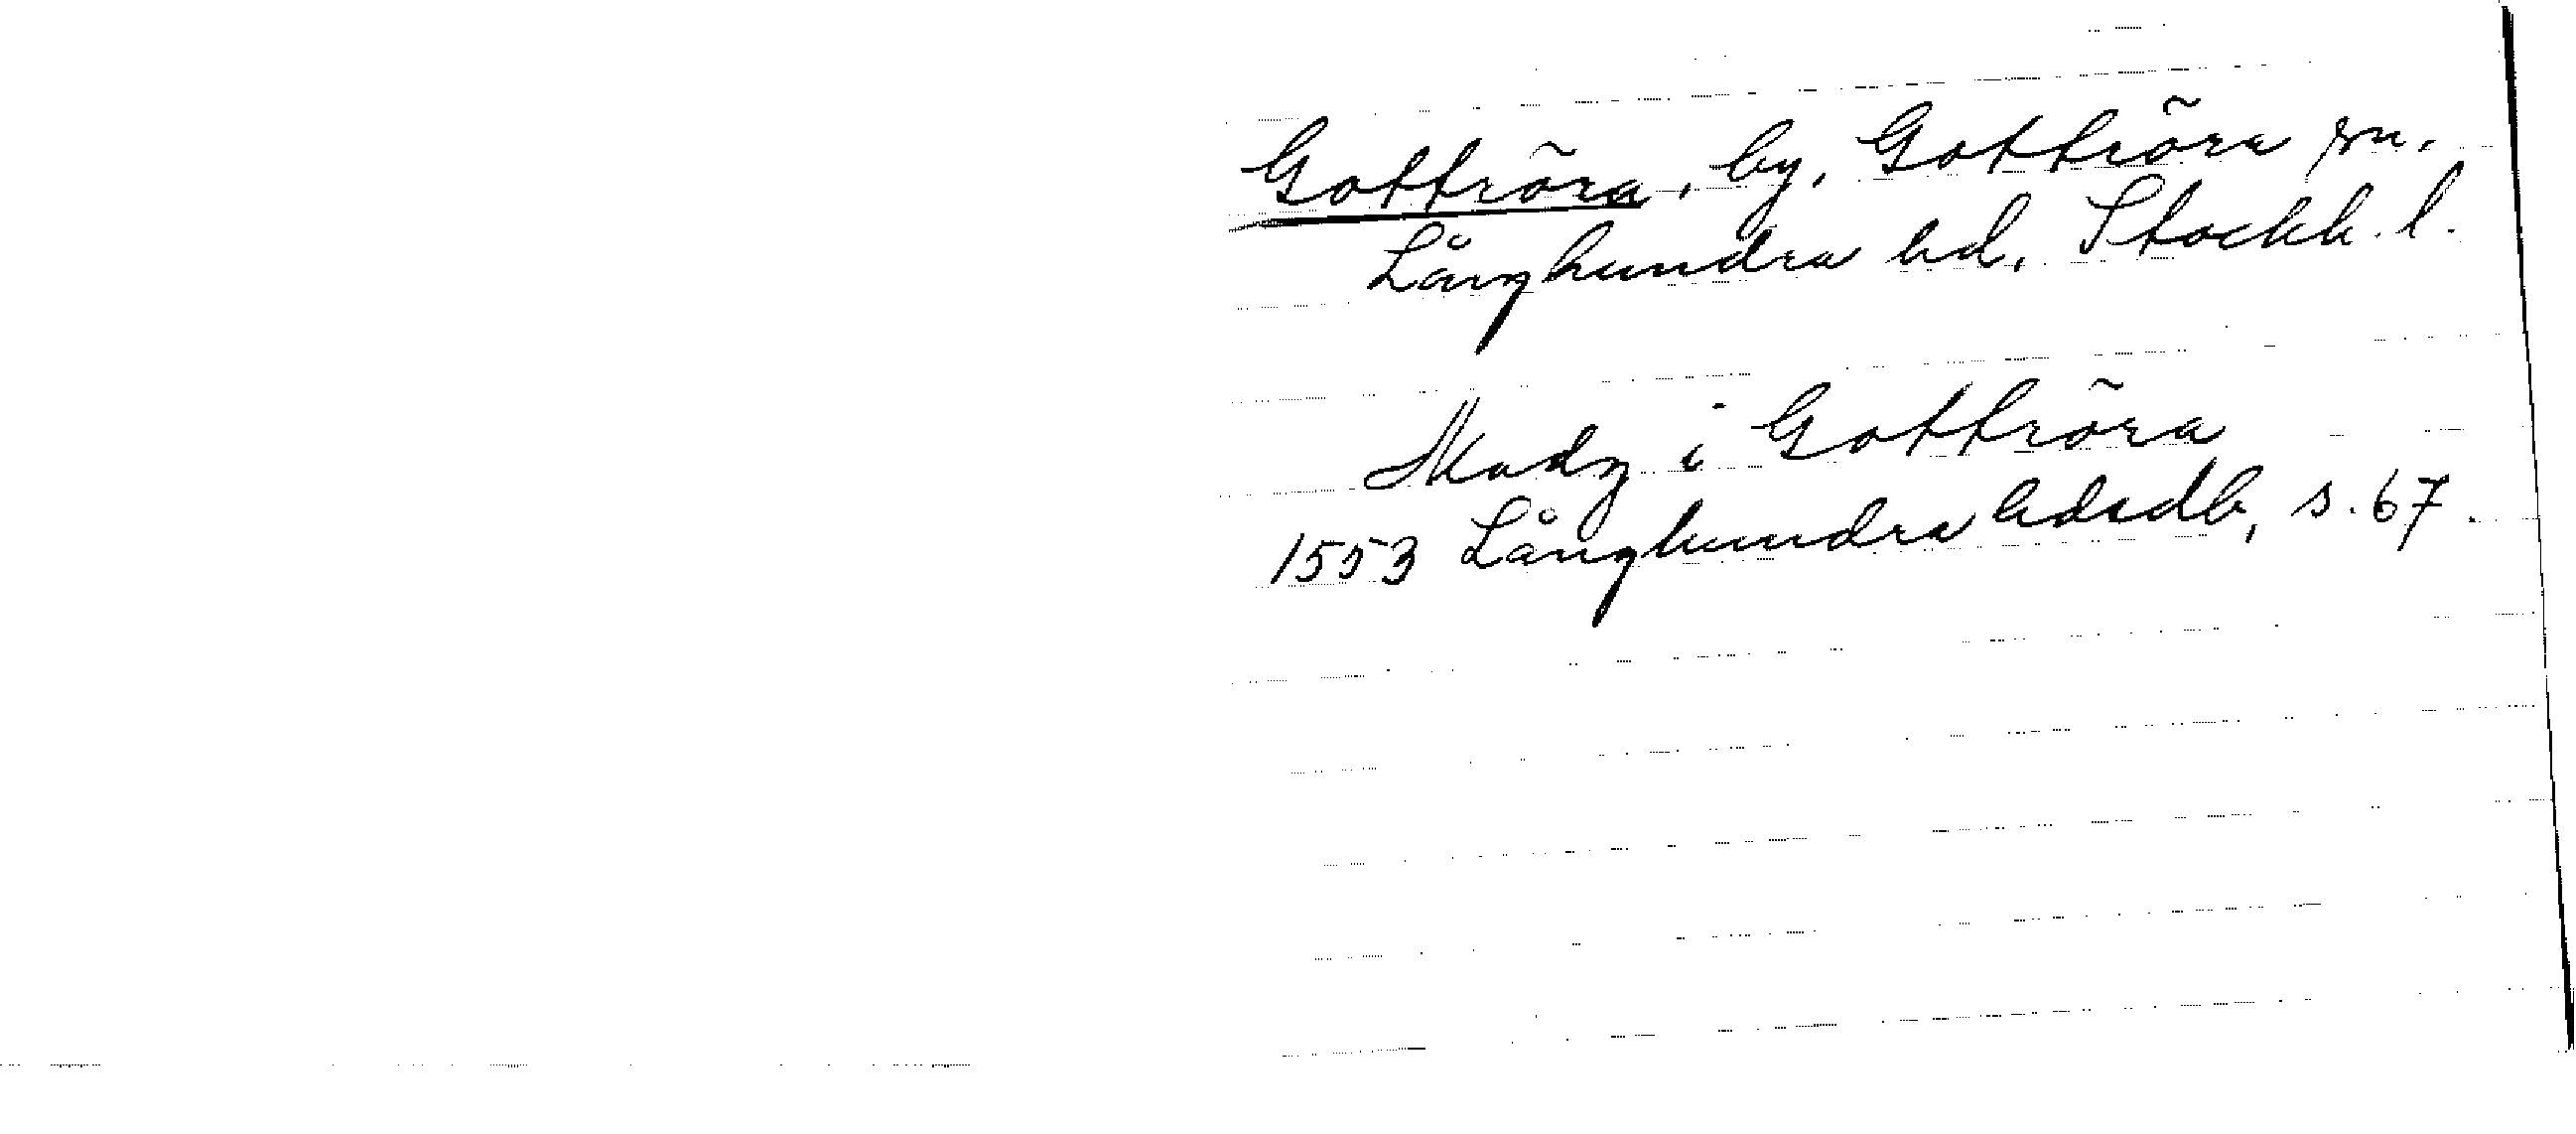 Gottröra, by, Gottröra sn.
Långhundra hd, Stockh. l.
Madz i Gottröra
1553 Långhundra hdsdb, s. 67.